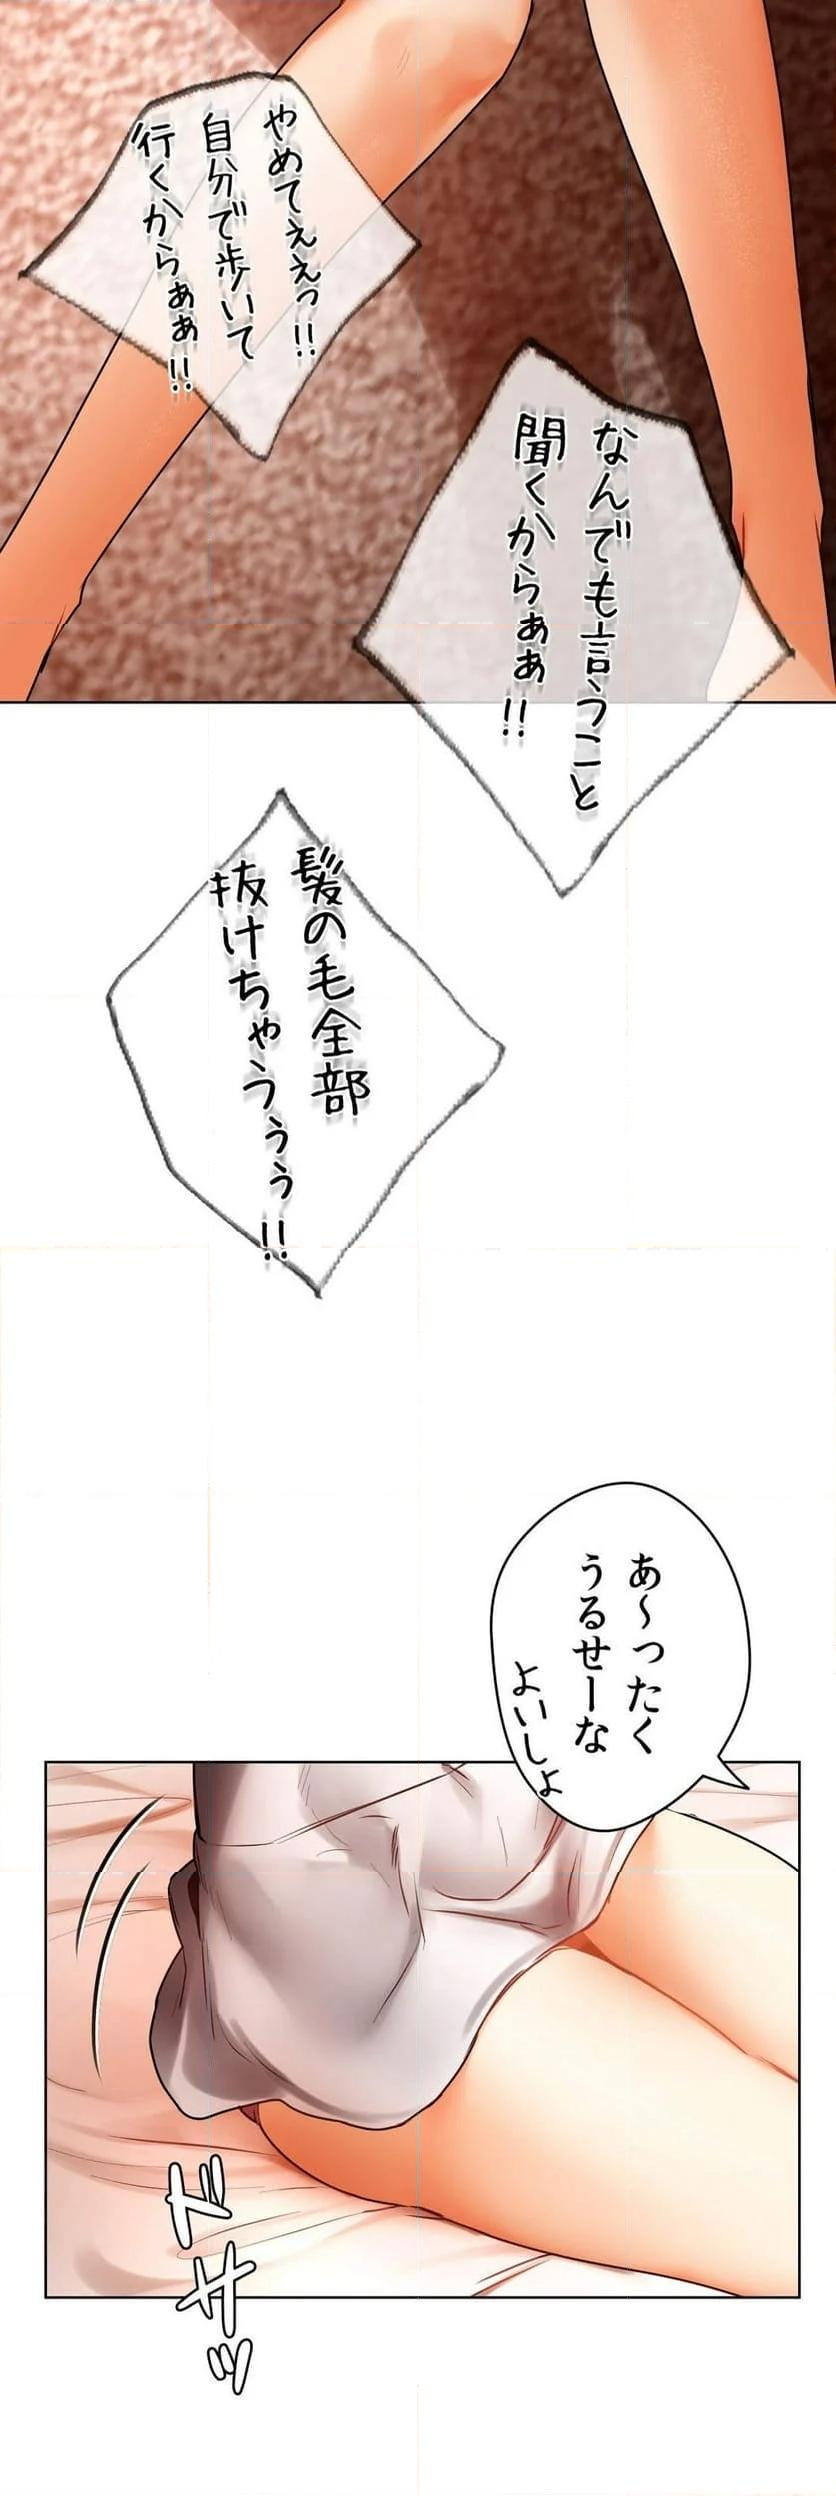 やめてええっ!!
自分で歩いて
行くからぁぁ!!
なんでも言うこと
聞くからぁぁ!!
髪の毛全部
抜けちゃううぅ!!
あ〜ったく
うるせーな
よいしょ
ドサッ